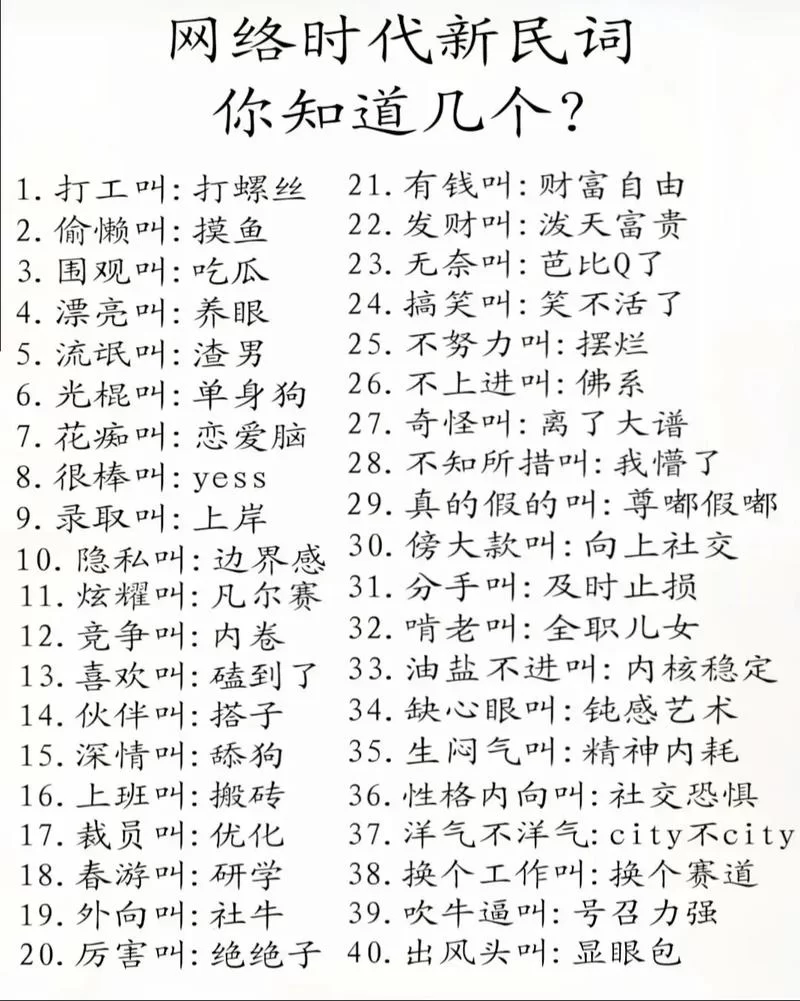 网络时代新民词
你知道几个?
1. 打工叫: 打螺丝
2. 偷懒叫: 摸鱼
3. 围观叫: 吃瓜
4. 漂亮叫: 养眼
5. 流氓叫: 渣男
6. 光棍叫: 单身狗
7. 花痴叫: 恋爱脑
8. 很棒叫: yess
9. 录取叫: 上岸
10. 隐私叫: 边界感
11. 炫耀叫: 凡尔赛
12. 竞争叫: 内卷
13. 喜欢叫: 磕到了
14. 伙伴叫: 搭子
15. 深情叫: 舔狗
16. 上班叫: 搬砖
17. 裁员叫: 优化
18. 春游叫: 研学
19. 外向叫: 社牛
20. 厉害叫: 绝绝子
21. 有钱叫: 财富自由
22. 发财叫: 泼天富贵
23. 无奈叫: 芭比Q了
24. 搞笑叫: 笑不活了
25. 不努力叫: 摆烂
26. 不上进叫: 佛系
27. 奇怪叫: 离了大谱
28. 不知所措叫: 我懵了
29. 真的假的叫: 尊嘟假嘟
30. 傍大款叫: 向上社交
31. 分手叫: 及时止损
32. 啃老叫: 全职儿女
33. 油盐不进叫: 内核稳定
34. 缺心眼叫: 钝感艺术
35. 生闷气叫: 精神内耗
36. 性格内向叫: 社交恐惧
37. 洋气不洋气: city不city
38. 换个工作叫: 换个赛道
39. 吹牛逼叫: 号召力强
40. 出风头叫: 显眼包